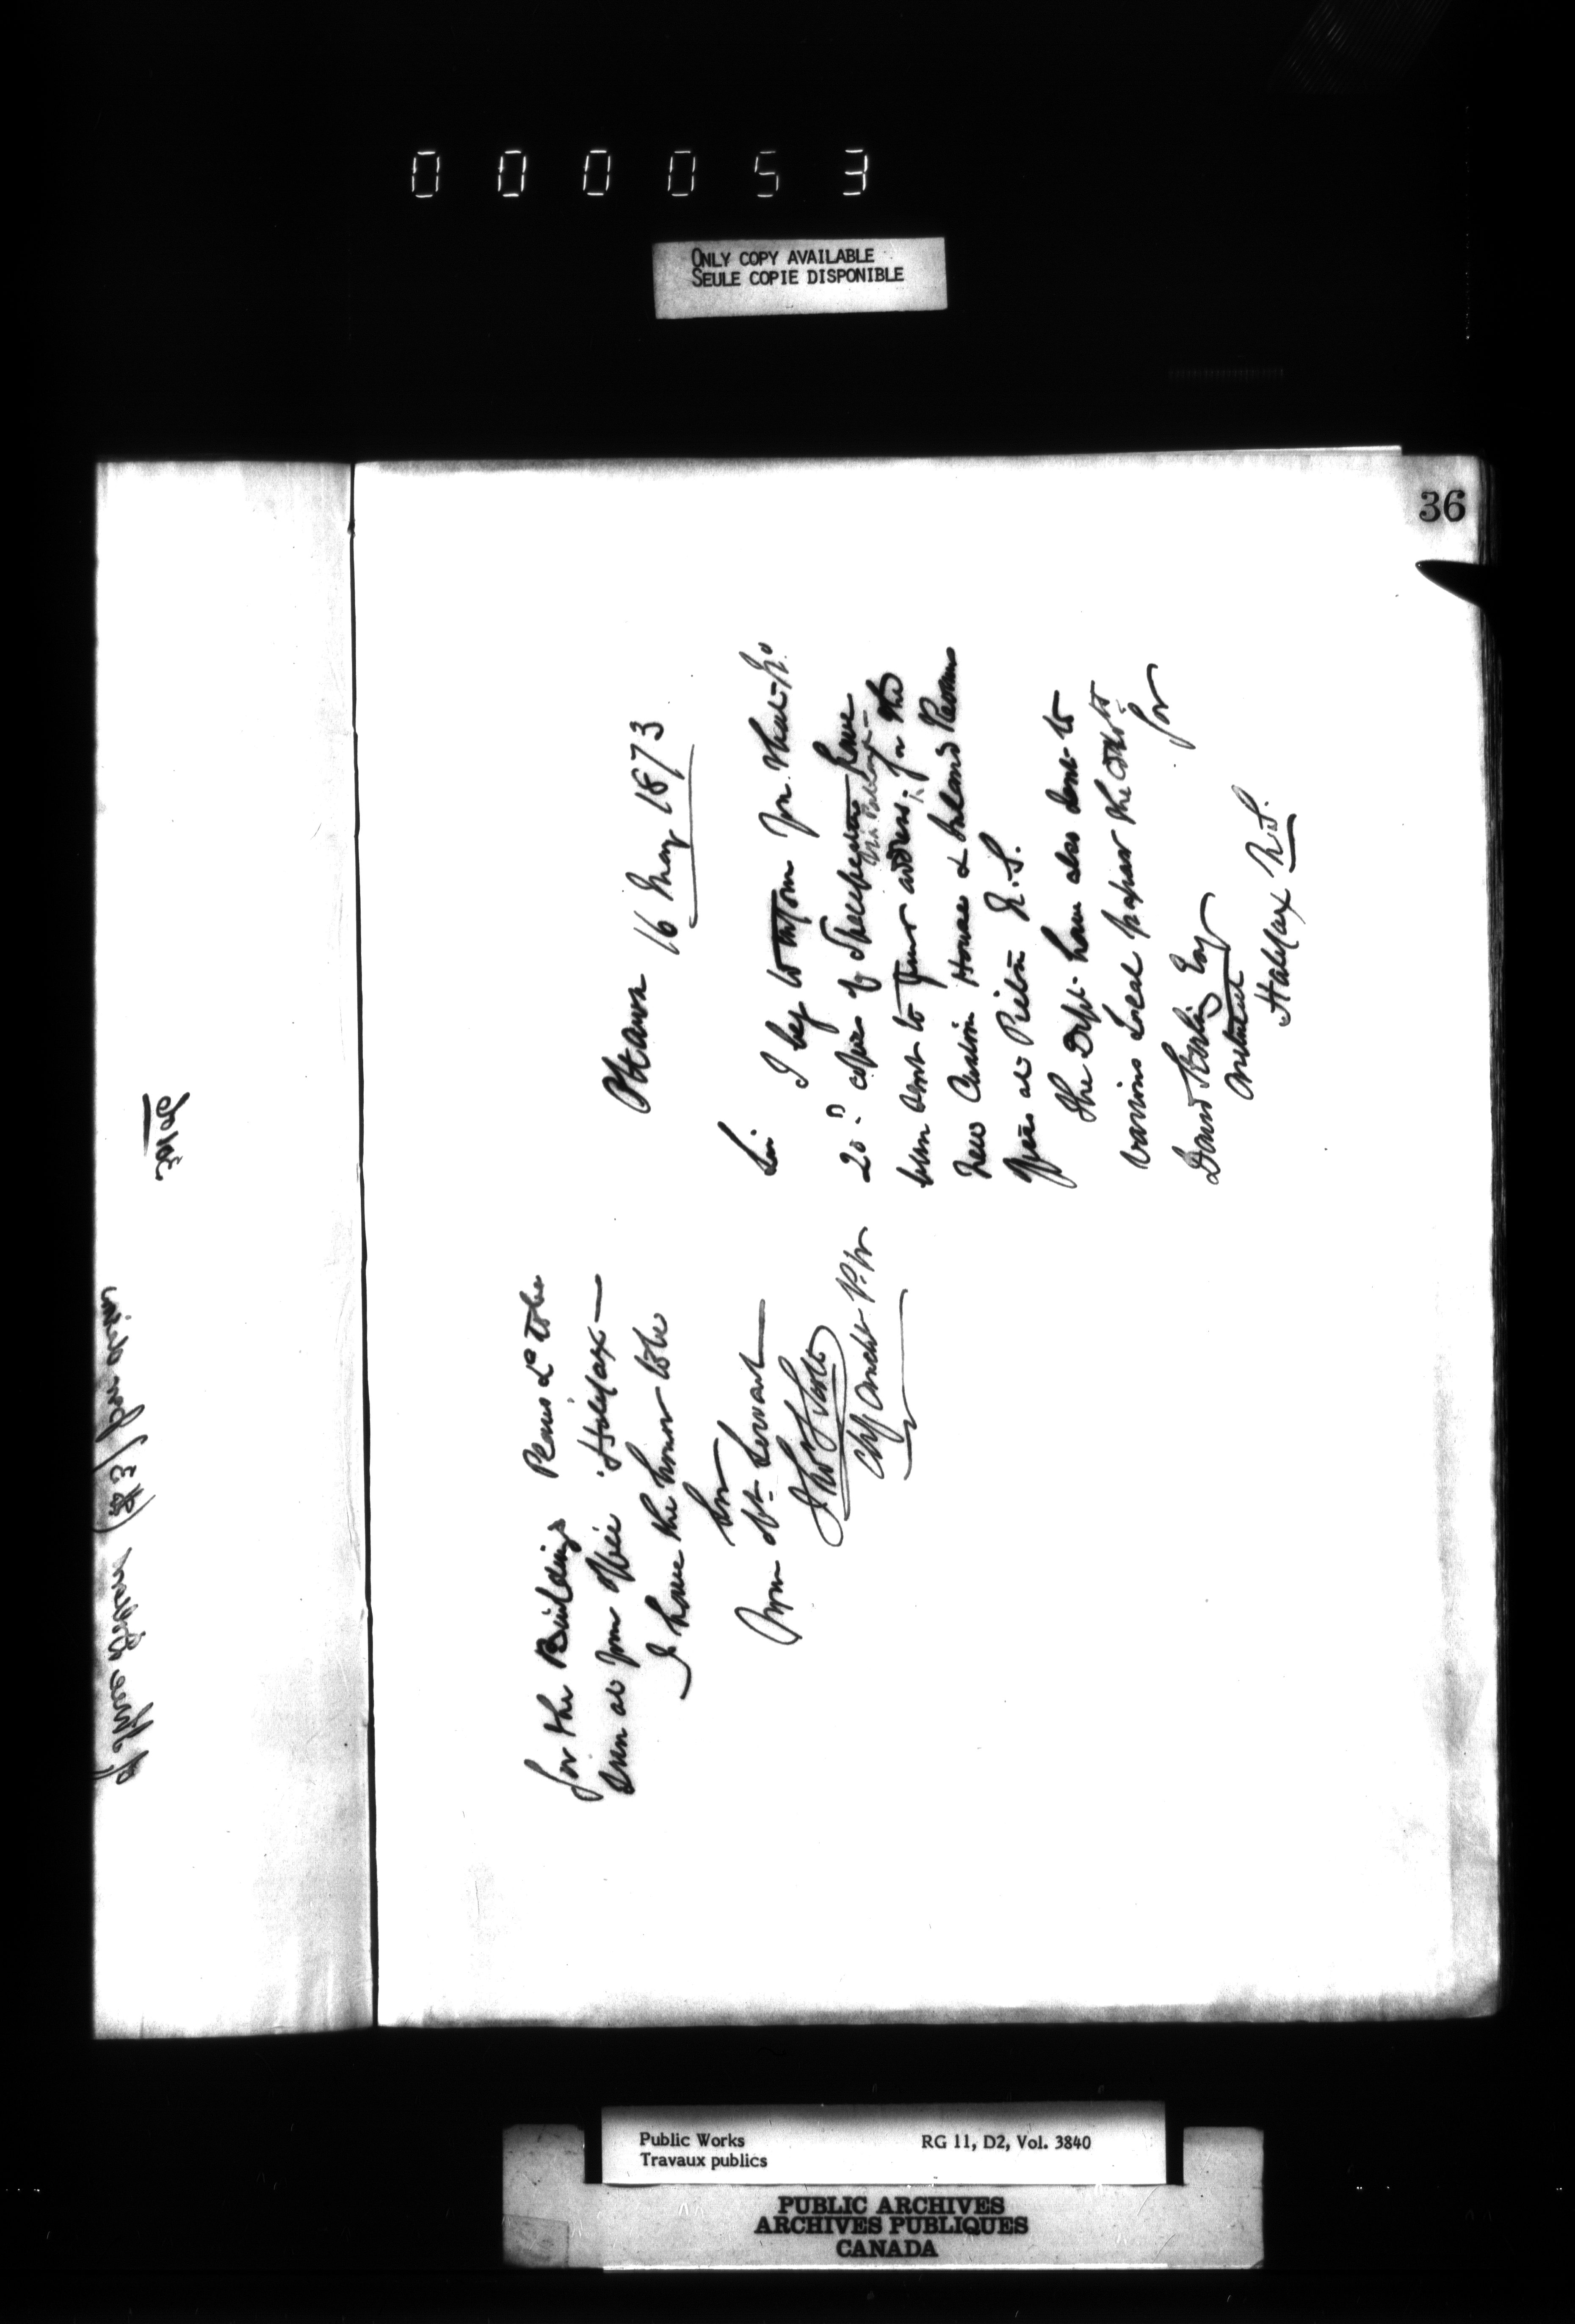 000053
ONLY COPY AVAILABLE
SEULE COPIE DISPONIBLE
36
Ottawa 16 May 1873
Sir
I beg to inform you that
20 copies of Specification have
been sent to your address, for the
New Custom House & Inland Revenue
Office at Pictou N.S.
The Dept. have also sent to
various Local papers the
for
David Stirling Esq
Architect
Halifax N.S.
for the Buildings Plans &c to be
seen at your office Halifax —
I have the honor to be
Sir
Your Obt. Servant
Thos S Scott
Chf Archt P.W
Public Works
Travaux publics
RG 11, D2, Vol. 3840
PUBLIC ARCHIVES
ARCHIVES PUBLIQUES
CANADA